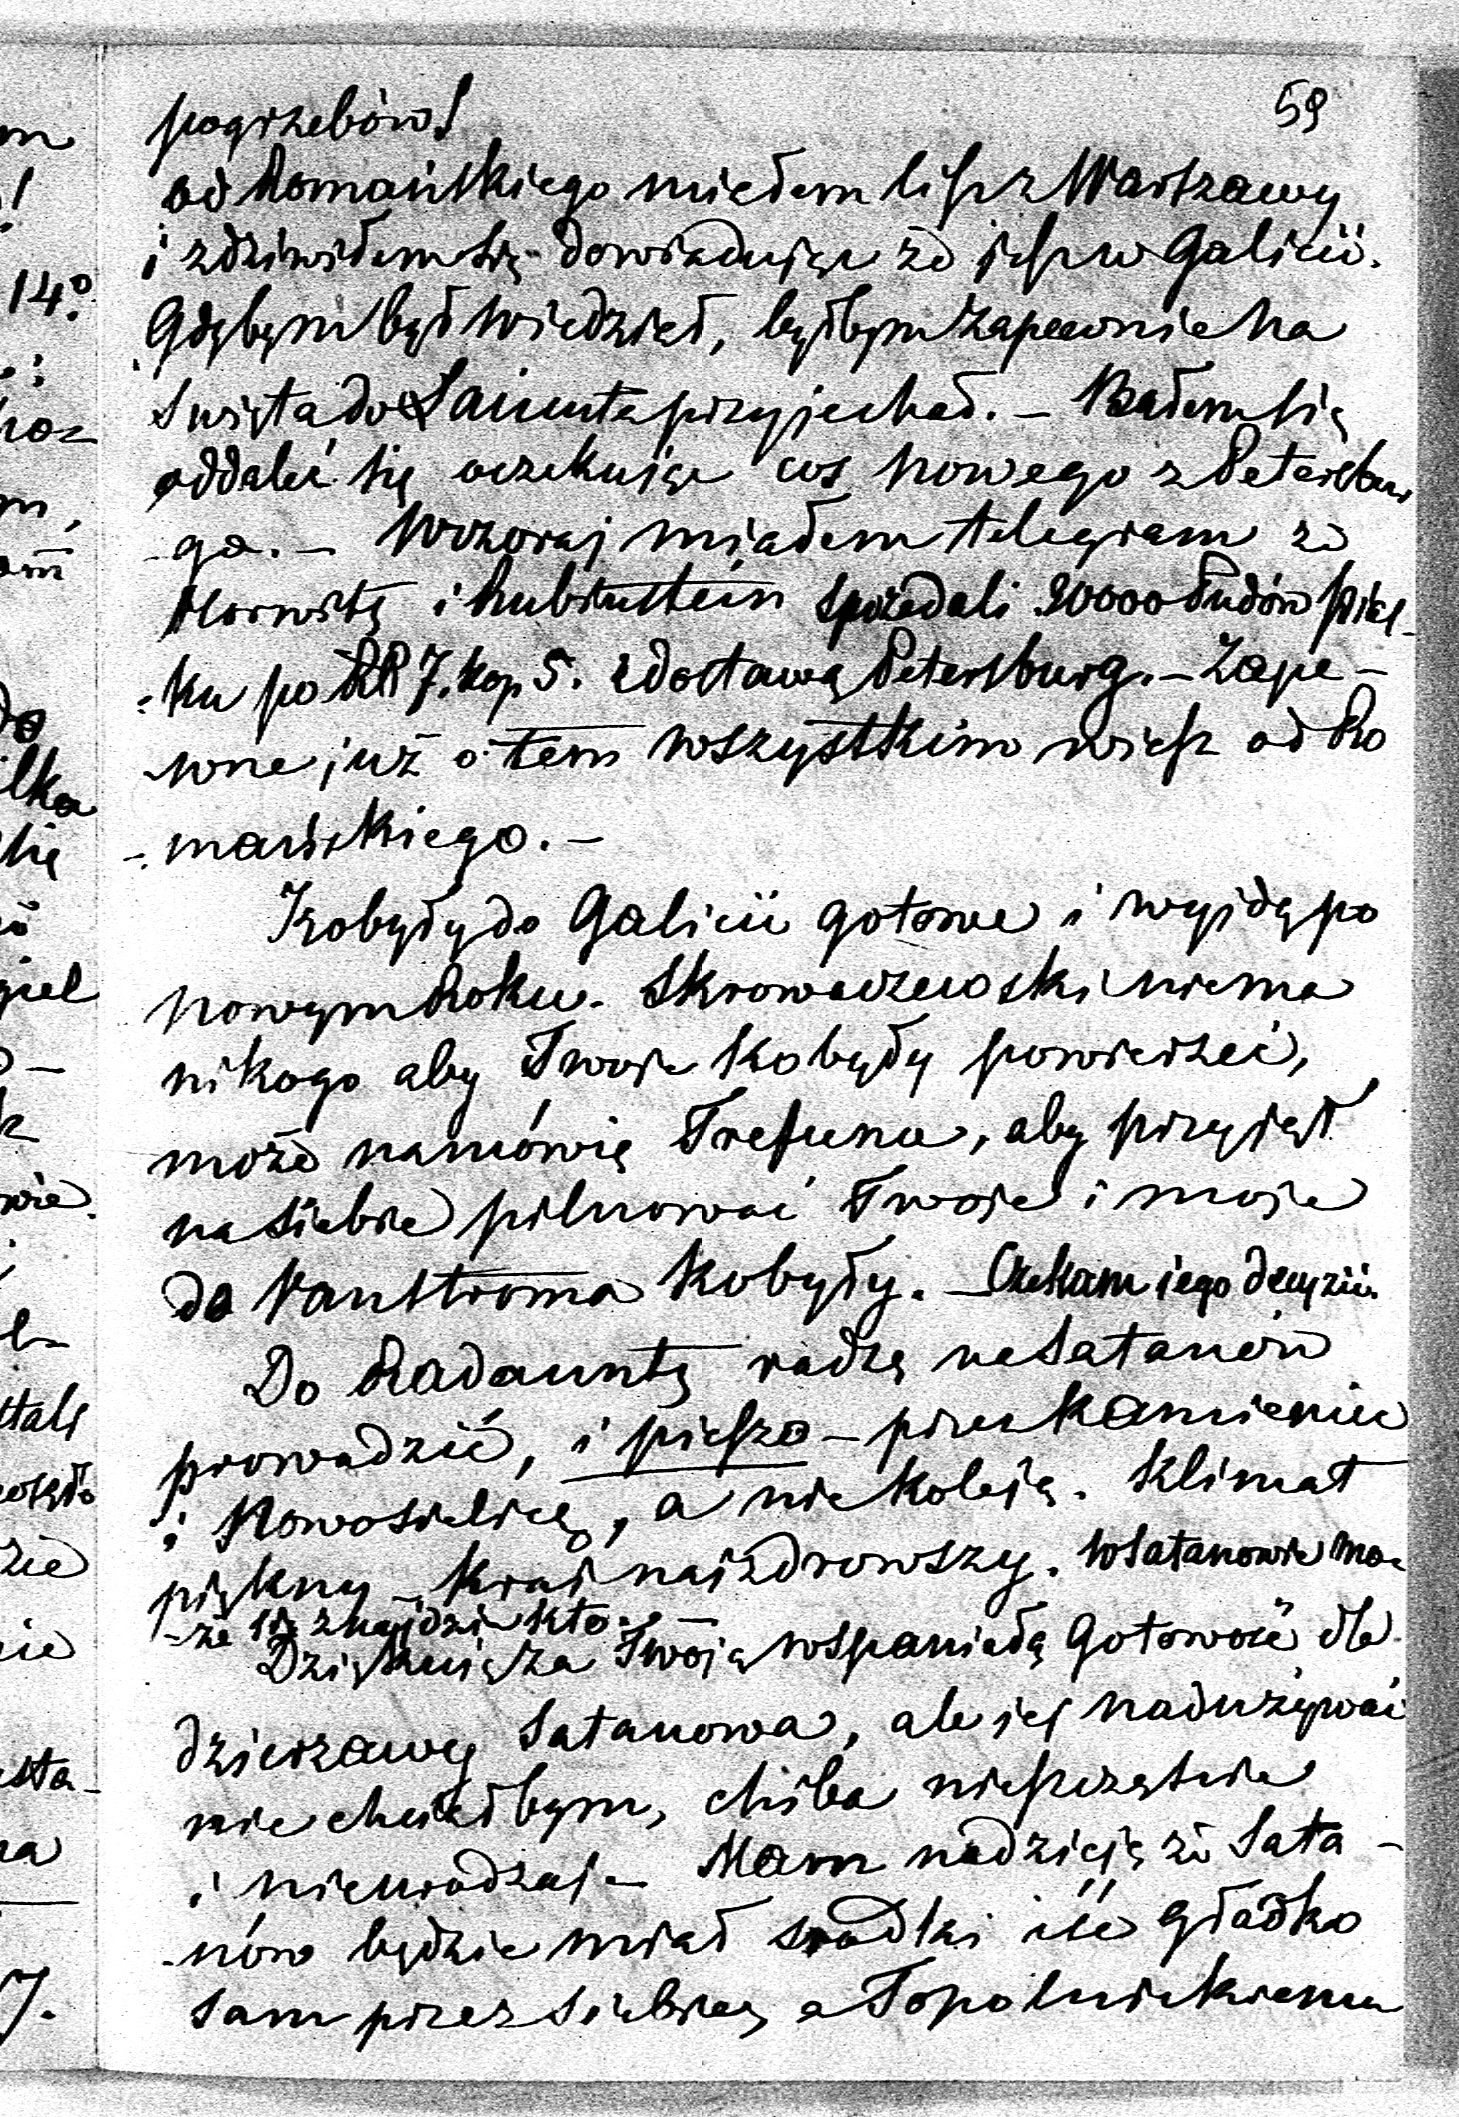 59
pogrzebów!
od Romańskiego miałem list z Warszawy
i zdziwiłem się dowiadując że jest w Galicii.
Gdybym był wiedział, byłbym zapewnie na
Swięta do Łańcuta przyjechał. – Bałem się
oddalić się oczekując cos nowego z Petersbur
ga. – Wczoraj miałem telegram że
Horwitz i Rubinstein sprzedali 20000 Pudów
-ku po RR 7. kop 5. z dostawą Petersburg. – Zape-
-wne już o tem wszystkim wiesz od Ro
-mańskiego. –
Kobyły do Galicii gotowe i wyjdą po
nowym Roku. Skrowaczewski niema
nikogo aby Twoje kobyły powierzeć,
może namówię Trefuna, aby przyjął
na siebie pilnować Twoje i moje
do Vanstroma kobyły. – Czekam iego decyzii.
Do Radauntz radzę na Satanów
prowadzić, i pieszo – przez Kamieniec
i Nowosielicę, a nie koleją. Klimat
piękny – kraj najzdrowszy. W Satanowie mo-
-że się znajdzie kto. –
Dziękuię za Twoją wspaniałą gotowość dla
dzierzawy Satanowa, ale jej nadużywać
nie chciałbym, chiba nieszczęście
i nieurodzaj. – Mam nadzieję że Sata-
-nów będzie miał srodki iść gładko
sam przez siebie, a Topolnickiemu
14°